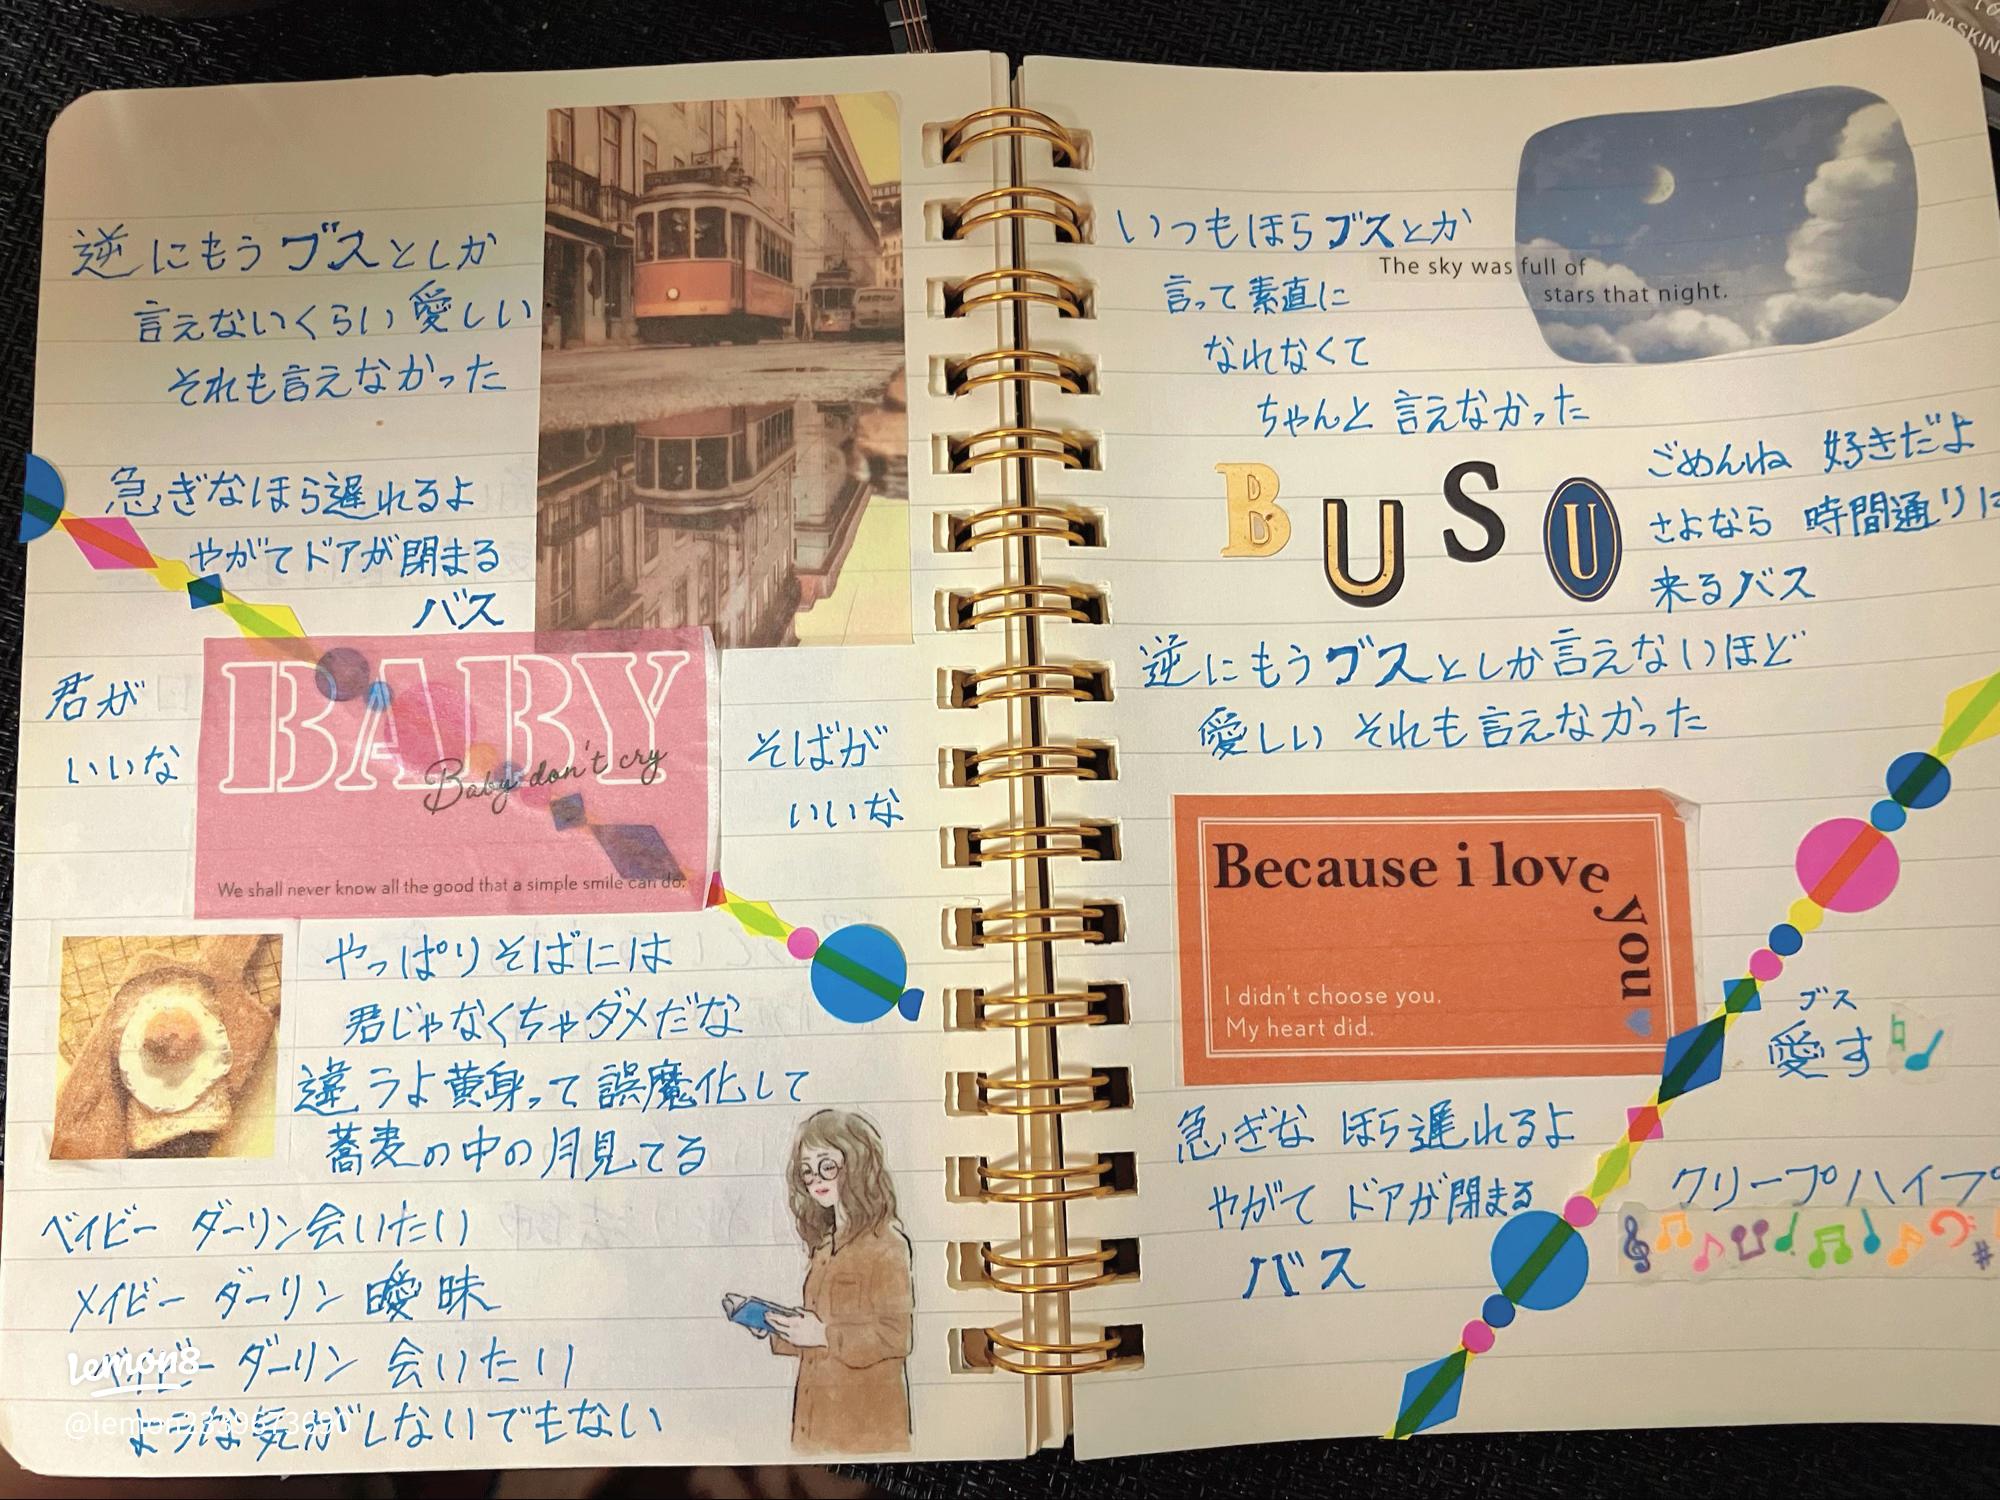 逆にもうブスとしか
言えないくらい愛しい
それも言えなかった
急ぎなほら遅れるよ
やがてドアが閉まる
バス
君が
いいな
BABY
Baby don't cry
We shall never know all the good that a simple smile can do.
そばが
いいな
やっぱりそばには
君じゃなくちゃダメだな
違うよ黄身って誤魔化して
蕎麦の中の月見てる
ベイビー ダーリン会いたい
メイビー ダーリン 曖昧
ベイビー ダーリン 会いたい
ような気がしないでもない
lemon8
@lemon2339573690
MASKIN
いつもほらブスとか
言って素直に
なれなくて
ちゃんと 言えなかった
The sky was full of
stars that night.
BUSU
ごめんね 好きだよ
さよなら 時間通りに
来るバス
逆にもうブスとしか言えないほど
愛しい それも言えなかった
Because i love you
I didn't choose you.
My heart did.
ブス
愛す
急ぎな ほら遅れるよ
やがて ドアが閉まる
バス
クリープハイプ